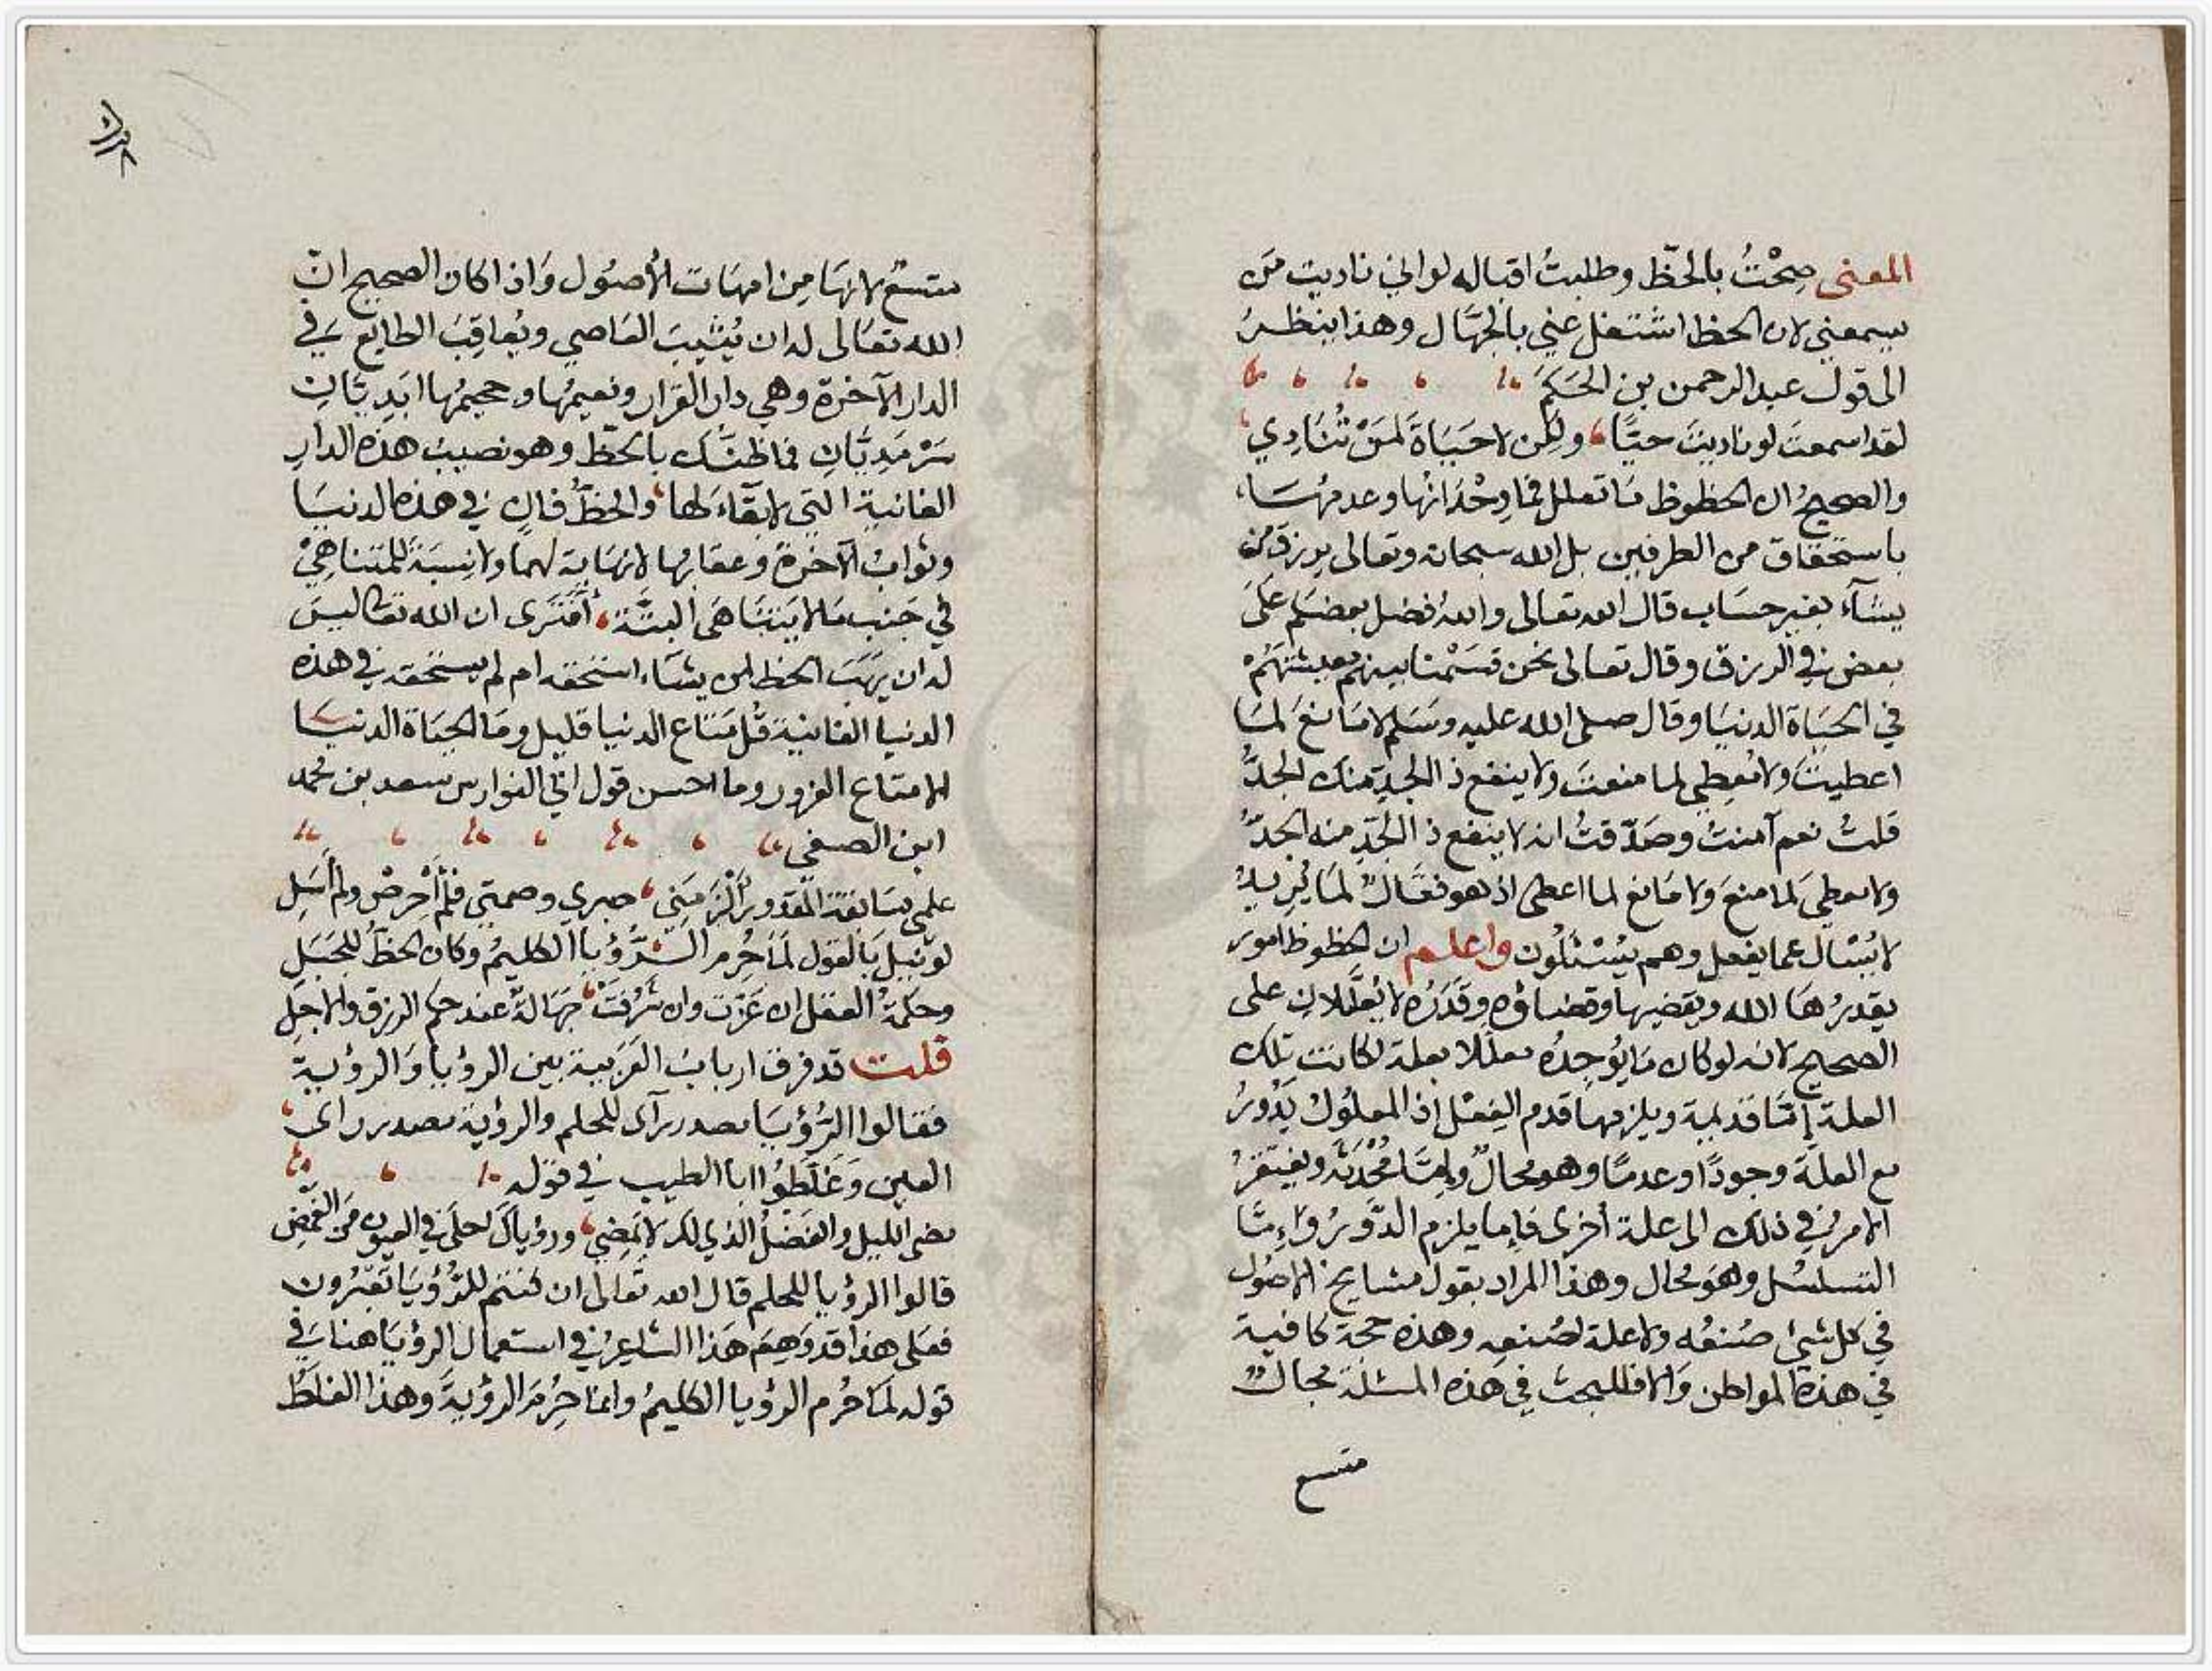 المعنى صِحْتُ بالحظّ وطلبتُ اقباله لو انى ناديت من
يسمعني لان الحظ اشتغل عني بالجهّال وهذا ينظرُ
الى قول عبد الرحمن بن الحَكَم
لقد اسمعتَ لو ناديتَ حيًّا ولكن لا حَيَاةَ لمَنْ تُنَادِي
والصحيحُ ان الحظوظ مَا تعلل في وِجْدَانها وعدمهَا
باستحقاق من الطرفين بل الله سبحانه وتعالى يرزق من
يشآء بغير حسَاب قال الله تعالى والله فضل بعضكم علَى
بعض في الرزق وقال تعالى نحن قسَمْنا بينهم معيشتَهُمْ
في الحيَاة الدنيَا وقال صلى الله عليه وسَلم لا مَانعَ لمَا
اعطيتَ ولا مُعطِي لما منعتَ ولا ينفع ذا الجدِّ منك الجدُّ
قلتُ نعم آمنتُ وصَدّقتُ انه لا ينفع ذا الجَدِّ منه الجدُّ
ولا معطيَ لما منعَ ولا مَانع لما اعطى اذ هو فعّالٌ لمَا يُريدُ
لا يُسْئال عما يفعل وهم يُسْئَلُون واعلم ان الحظوظ امور
يقدرُهَا الله ويقضيها وقضاؤه وقَدَرُه لا يُعَلَّلان على
الصحيح لانه لو كان مَا يُوجِدُه معلّلا بعلة لكانت تلك
العلة إمَّا قديمة ويلزمها قدم الفِعْل إذ المعلُول يَدُورُ
مع العلّة وجودًا وعدمًا وهو محالٌ وإمَّا مُحْدَثة ويفتقرُ
الامر في ذلك الى علة أخرى فإما يلزم الدَّورُ وَإِمَّا
التسلسُل وهوَ محال وهذا المراد بقول مشايخ الاصُول
في كل شئ صُنعُه ولا علة لصُنعِه وهذه حجة كافية
في هذه المواطن وَالا فللبحث في هَذه المسئلة مجالٌ
متسع
متسعٌ لانهَا مِن امهَات الأُصُول وَاذا كان الصحيح انّ
الله تعَالى له ان يُثيبَ العَاصي ويُعاقِبَ الطايع في
الدار الآخرة وهي دار القرار ونعيمُها وجحيمُها ابَدِيّانِ
سَرْمَدِيَّانِ فما ظنّك بالحَظّ وهو نصيبُ هذه الدارِ
الفانية التي لا بقَآءَ لها والحظّ فانٍ في هذه الدنيَا
وثوابُ الآخرة وعقابُها لا نهَاية لهما ولا نِسبَةَ للمتناهِيْ
في جَنب مَا لا يَتنَاهَى البتَّة أفتَرى ان الله تعَالى ليسَ
له ان يَهَبَ الحظ لمن يشَاء استحقه ام لم يستحقه في هذه
الدنيا الفانية قُل مَتاع الدنيا قليل ومَا الحيَاة الدنيَا
الا متاع الغرور وما احسن قول ابي الفوارس سعد بن محمد
ابن الصيفي
علمى بسَابقة المقدور ألْزَمَنِي صبري وصمتي فلم أحْرِصْ ولم أسَلِ
لو نيل بَالقول لمَا حُرم الرُّؤيا الكليمُ وكان الحَظُّ للجَبَلِ
وحكمةُ العَقل ان عَزّت وان شَرُفَتْ جَهَالةٌ عند حكم الرزق والاجلِ
قلت قد فرق اربابُ العَرَبية بين الرؤيا وَالرؤية
فقالوا الرُّؤيَا مصدر رآى للحلم والرؤية مصدر رأى
العين وَغَلّطُوا ابا الطيب في قوله
مضى الليل والفَضْلُ الذي لك لا يَمضِي ورؤياكَ احلَى في العيون من الغَمْضِ
قالوا الرؤيا للحلم قال الله تعَالى ان كنتم للرُّؤيَا تعبُرون
فعَلى هذا قد وَهِمَ هَذا الشاعِرُ في استعمال الرؤيَا هنا في
قوله لمَا حُرم الرؤيا الكليمُ وانما حُرِمَ الرؤيةَ وهذا الغلطُ